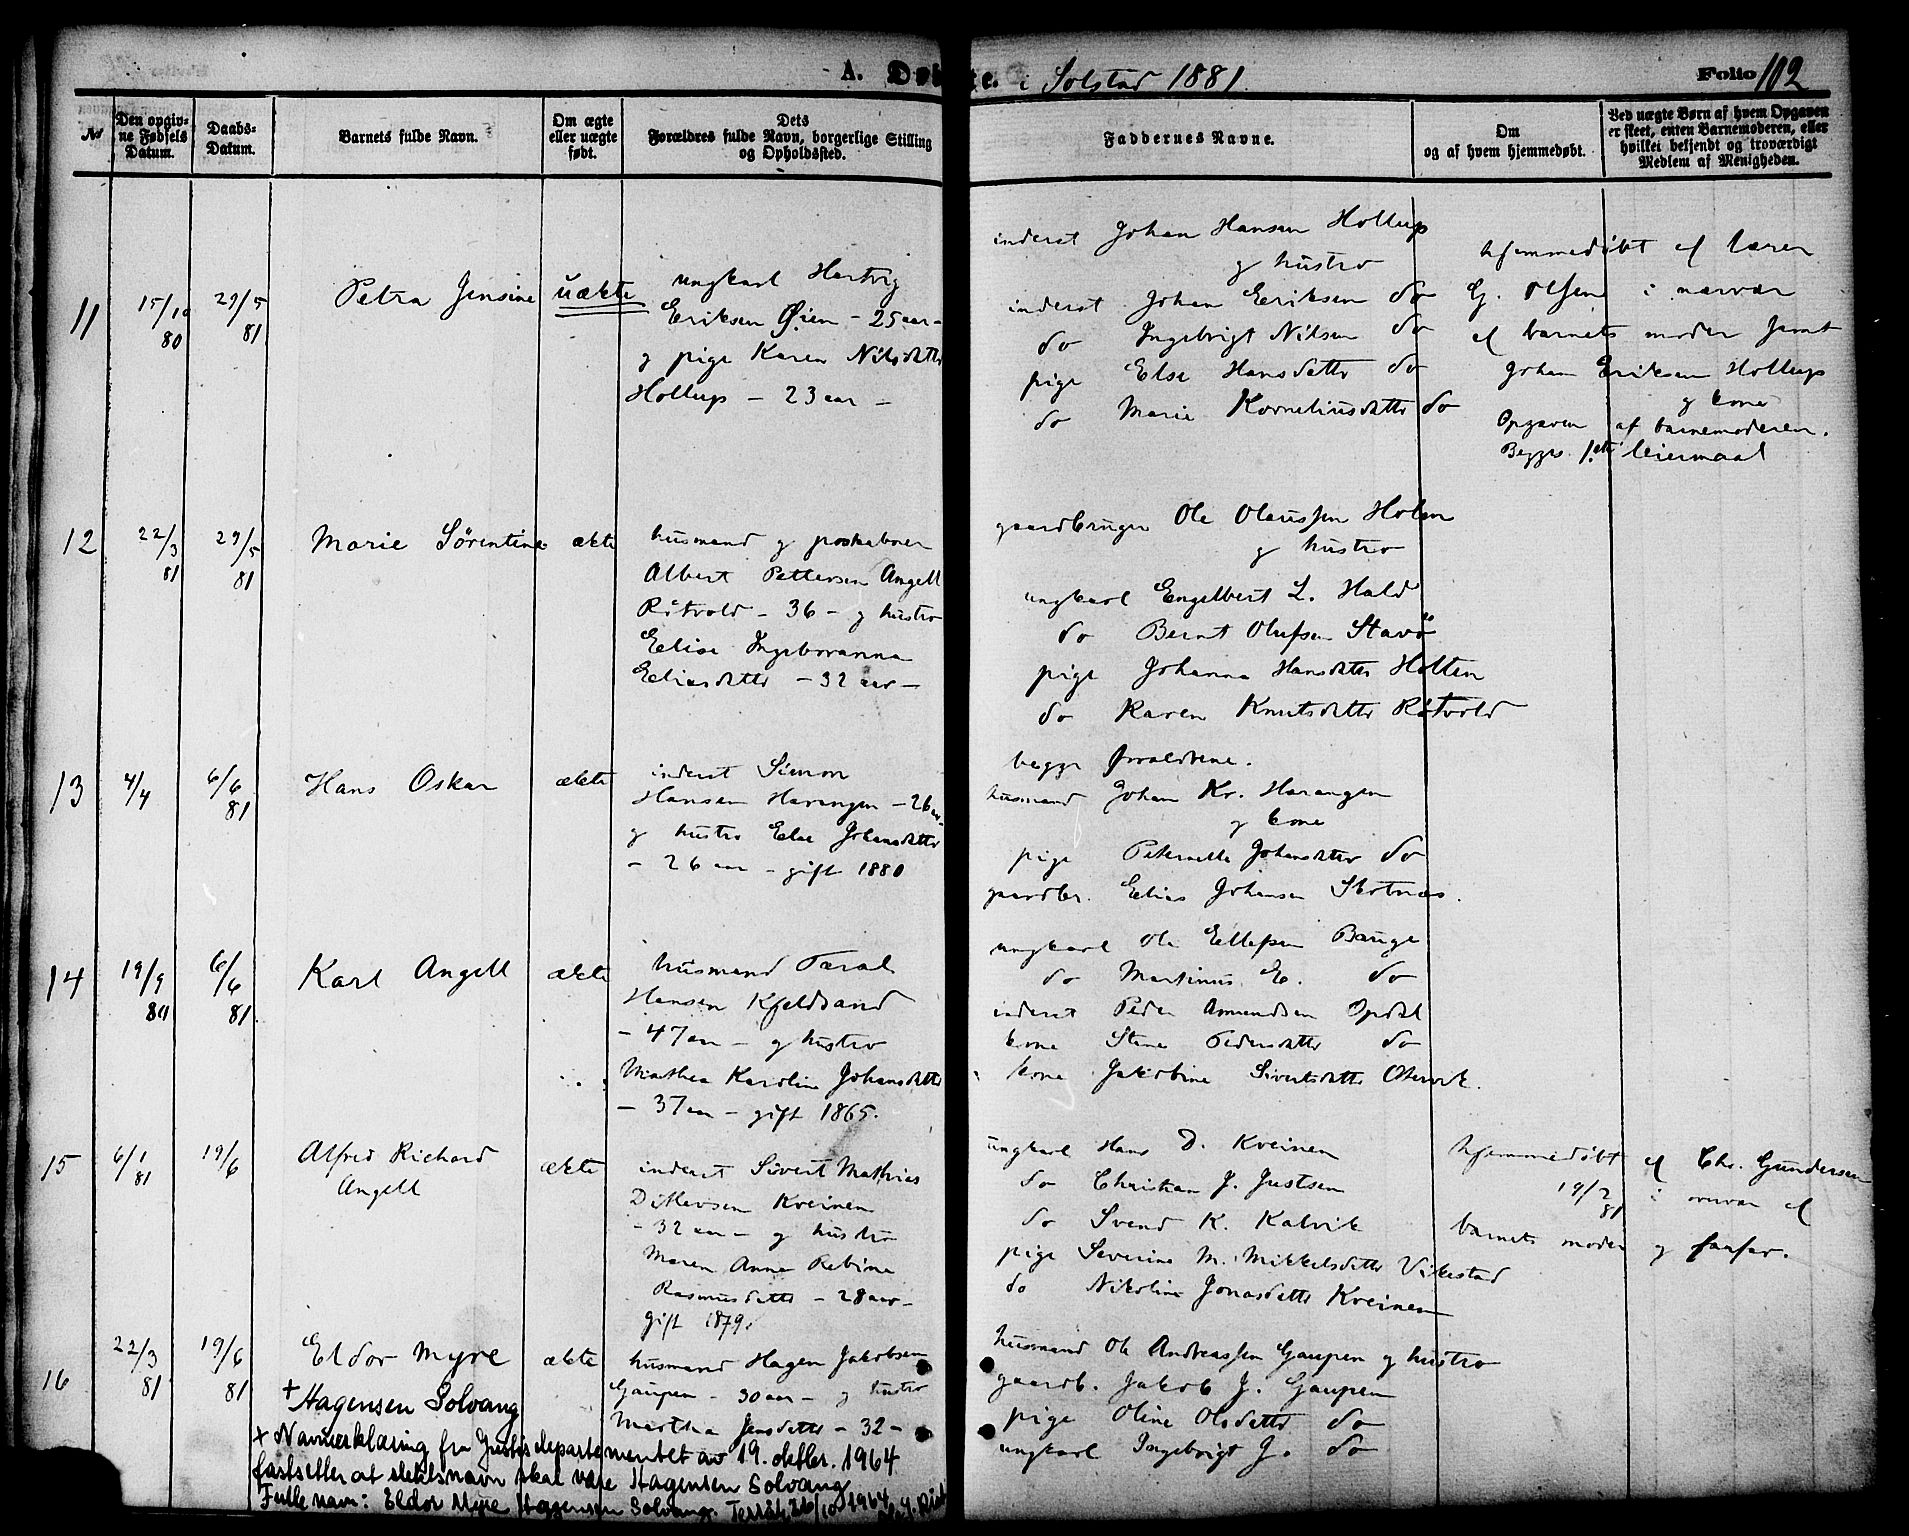 A. Døbte. i Solstad 1881.
Folio 102
No
Den opgivne Fødsels Datum.
Daabs-Datum.
Barnets fulde Navn.
Om ægte eller uægte født.
Dets Forældres fulde Navn, borgerlige Stilling og Opholdssted.
Faddernes Navne.
Om og af hvem hjemmedøbt.
Ved uægte Børn af hvem Opgaven er skeet, enten Barnemoderen, eller hvilket bekjendt og troværdigt Medlem af Menigheden.
11
15/10 80
29/5 81
Petra Jensine
uækte
ungkarl Hartvig
Eriksen Øien - 25 aar -
og pige Karen Nilsdatter
Hollup - 23 aar -
inderst Johan Hansen Hollup
og hustro
inderst Johan Eriksen do
do Ingebrigt Nilsen do
pige Else Hansdatter do
do Marie Korneliusdatter do
hjemmedøbt af lærer
G. Olsen i nærvær
af barnets moder samt
Johan Eriksen Hollup
og kone
Opgaven af barnemoderen.
Begges 1ste leiermaal
12
22/3 81
29/5 81
Marie Sørentine
ækte
husmand og postaabner
Albert Pettersen Angell
Råtvold - 36 - og hustro
Elise Ingeboranna
Eliasdatter - 32 aar -
gaardbruger Ole Olaussen Holen
og hustro
ungkarl Engelbert L. Hald
do Bernt Olufsen Stavø
pige Johanna Hansdatter Holten
do Karen Knutsdatter Råtvold
13
4/4
6/6 81
Hans Oskar
ækte
inderst Simon
Hansen Harangen - 26 aar -
og hustro Else Johansdatter
- 26 aar - gift 1880
begge forældrene.
husmand Johan Kr. Harangen
og kone
pige Peternella Johansdatter do
gaardbr. Elias Johansen Skotnæs.
14
19/9 80
6/6 81.
Karl Angell
ækte
husmand Taral
Hansen Kjeldsand
- 47 aar - og hustro
Mathea Karoline Johansdatter
- 37 aar - gift 1865.
ungkarl Ole Ellefsen Bauge
do Martinus E. do
inderst Peder Amundsen Opdal
kone Stine Pedersdatter do
kone Jakobine Sivertsdatter Otervik.
15
6/1 81
19/6
Alfred Richard
Angell
ækte
inderst Sivert Mathias
Ditlevsen Kveinen
- 32 aar - og hustro
Maren Anna Rebina
Rasmusdatter - 28 aar -
gift 1879.
ungkarl Hans D. Kveinen
do Christian J. Justsen
do Svend K. Kalvik
pige Severine M. Mikkelsdatter Vikestad
do Nikoline Jonasdatter Kveinen
hjemmedøbt af Chr. Gundersen
19/2 81 i overvær af
barnets moder og farfar.
16
22/3 81
19/6 81
Eldor Myre
+ Hagensen Solvang
ækte
husmand Hagen Jakobsen
Gaupen - 30 aar - og hustro
Martha Jensdatter - 32 -
husmand Ole Andreassen Gaupen og hustro
gaardb. Jakob J. Gaupen
pige Oline Olsdatter do
ungkarl Ingebrigt J. do
+ Navneerklæring fra Justisdepartementet av 19. oktbr. 1964
fastsetter at slektsnavn skal være Hagensen Solvang
Fulle navn: Eldor Myre Hagensen Solvang. Terråk 26/10 1964